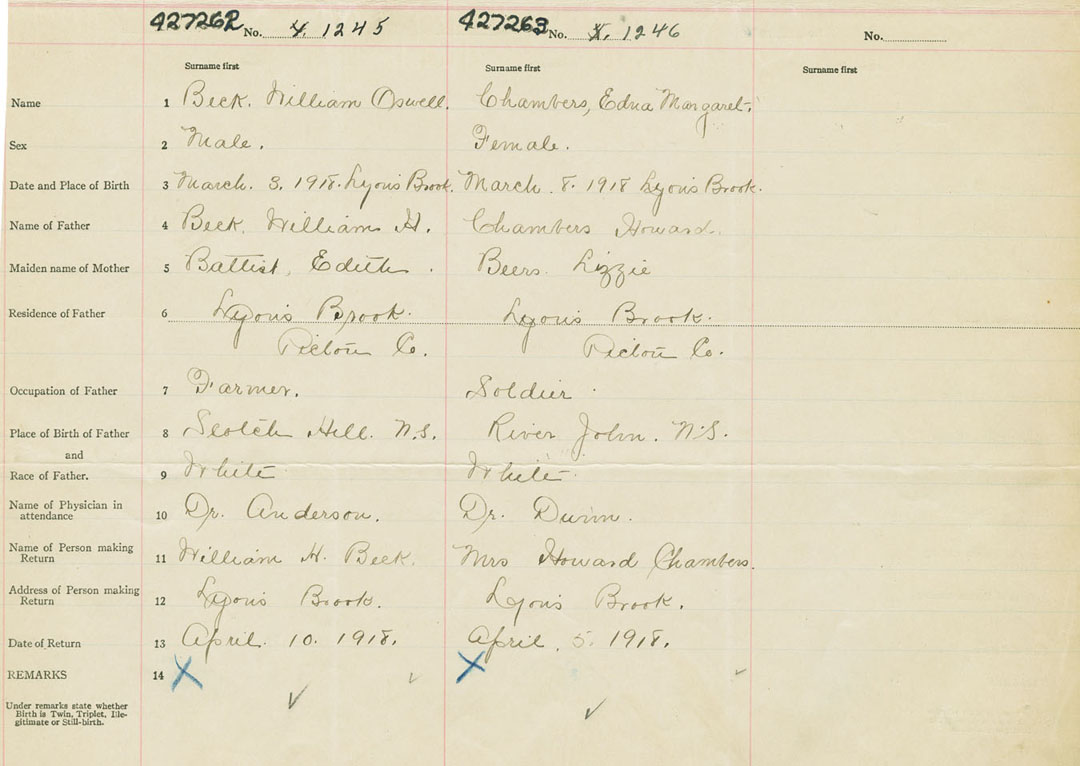 427262 No. X. 1245 427263 No. X. 1246 No.
Surname first Surname first Surname first
Name 1 Beck. William Oswell. Chambers, Edna Margaret.
Sex 2 Male. Female.
Date and Place of Birth 3 March. 3, 1918. Lyon's Brook. March. 8. 1918 Lyon's Brook.
Name of Father 4 Beck. William H. Chambers Howard.
Maiden name of Mother 5 Battist, Edith. Beers. Lizzie
Residence of Father 6 Lyon's Brook. Lyon's Brook.
Pictou Co. Pictou Co.
Occupation of Father 7 Farmer. Soldier.
Place of Birth of Father 8 Scotch Hill. N.S. River John. N.S.
and
Race of Father. 9 White White
Name of Physician in
attendance 10 Dr. Anderson. Dr. Dunn.
Name of Person making
Return 11 William H. Beck. Mrs Howard Chambers.
Address of Person making
Return 12 Lyon's Brook. Lyon's Brook.
Date of Return 13 April. 10. 1918. April. 5. 1918.
REMARKS 14 X X
Under remarks state whether
Birth is Twin, Triplet, Ille-
gitimate or Still-birth.